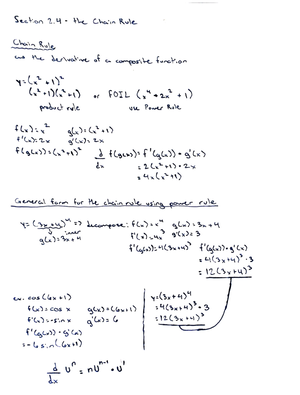 Section 2.4 - the Chain Rule
Chain Rule
the derivative of a composite function
y = (x² + 1)²
(x² + 1)(x² + 1) or FOIL (x⁴ + 2x² + 1)
product rule use Power Rule
f(x) = x² g(x) = (x² + 1)
f'(x) = 2x g'(x) = 2x
f(g(x)) = (x² + 1)² d/dx f(g(x)) = f'(g(x)) • g'(x)
= 2(x² + 1) • 2x
= 4x(x² + 1)
General form for the chain rule using power rule
y = (3x + 4)⁴ => decompose: f(x) = x⁴ g(x) = 3x + 4
inner f'(x) = 4x³ g'(x) = 3
g(x) = 3x + 4 f'(g(x)) = 4(3x + 4)³ f'(g(x)) • g'(x)
= 4(3x + 4)³ • 3
= 12(3x + 4)³
ex. cos(6x + 1)
f(x) = cos x g(x) = (6x + 1)
f'(x) = -sin x g'(x) = 6
f'(g(x)) • g'(x)
= -6 sin(6x + 1)
y = (3x + 4)⁴
= 4(3x + 4)³ • 3
= 12(3x + 4)³
d/dx Uⁿ = nUⁿ⁻¹ • U'